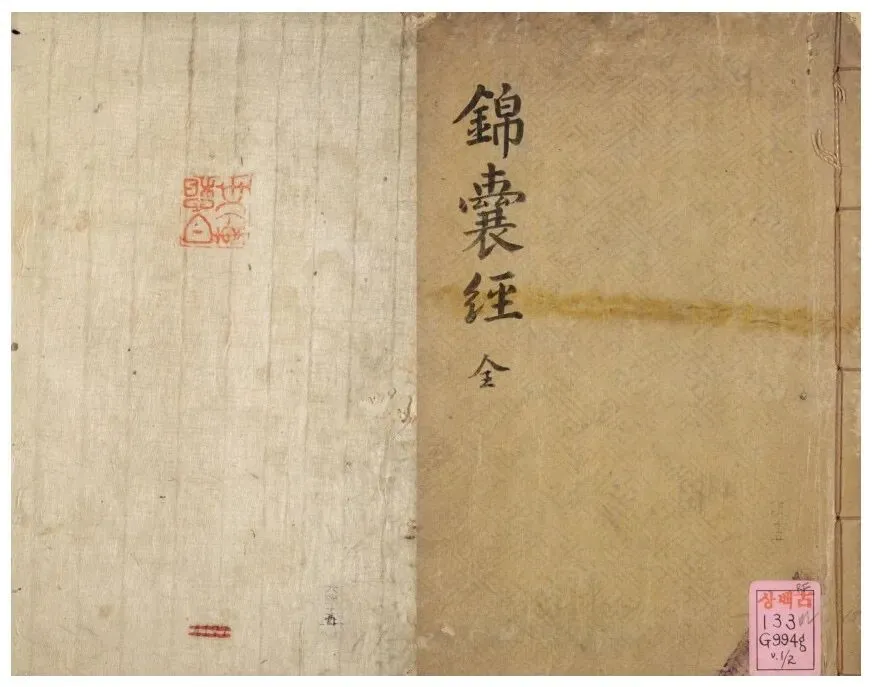 錦囊經 全
상백古
133
G994g
v.1/2